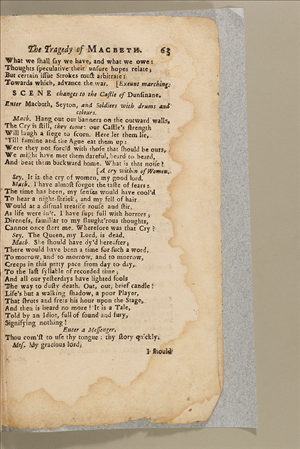 The Tragedy of MACBETH. 63
What we shall say we have, and what we owe:
Thoughts speculative their unsure hopes relate;
But certain issue Strokes must arbitrate:
Towards which, advance the war. [Exeunt marching.
SCENE changes to the Castle of Dunsinane.
Enter Macbeth, Seyton, and Soldiers with drums and
colours.
Macb. Hang out our banners on the outward walls,
The Cry is still, they come: our Castle's strength
Will laugh a siege to scorn. Here let them lie,
Till famine and the Ague eat them up:
Were they not forc'd with those that should be ours,
We might have met them dareful, beard to beard,
And beat them backward home. What is that noise?
[A cry within of Women.
Sey. It is the cry of women, my good lord.
Macb. I have almost forgot the taste of fears:
The time has been, my senses would have cool'd
To hear a night-shriek; and my fell of hair
Would at a dismal treatise rouze and stir,
As life were in't. I have supt full with horrors;
Direness, familiar to my slaught'rous thoughts,
Cannot once start me. Wherefore was that Cry?
Sey. The Queen, my Lord, is dead.
Macb. She should have dy'd hereafter;
There would have been a time for such a word.
To-morrow, and to-morrow, and to-morrow,
Creeps in this petty pace from day to day,
To the last syllable of recorded time;
And all our yesterdays have lighted fools
The way to dusty death. Out, out, brief candle!
Life's but a walking shadow, a poor Player,
That struts and frets his hour upon the Stage,
And then is heard no more! It is a Tale,
Told by an Idiot, full of sound and fury,
Signifying nothing!
Enter a Messenger.
Thou com'st to use thy tongue: thy story quickly.
Mes. My gracious lord,
I should